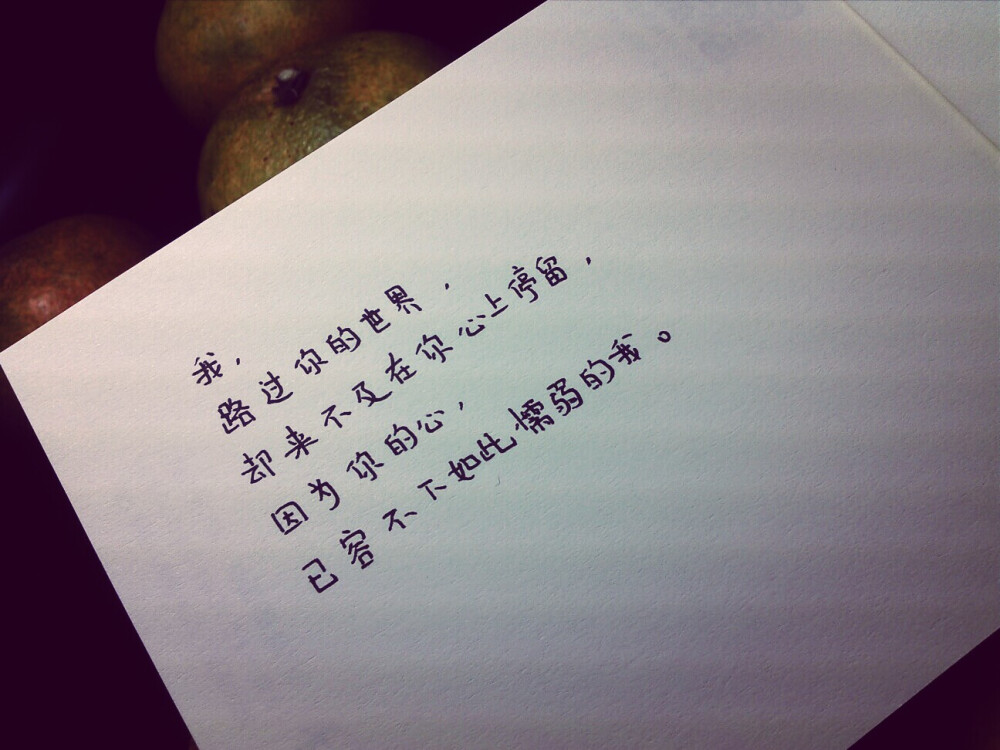 我，
路过你的世界，
却来不及在你心上停留，
因为你的心，
已容不下如此懦弱的我。